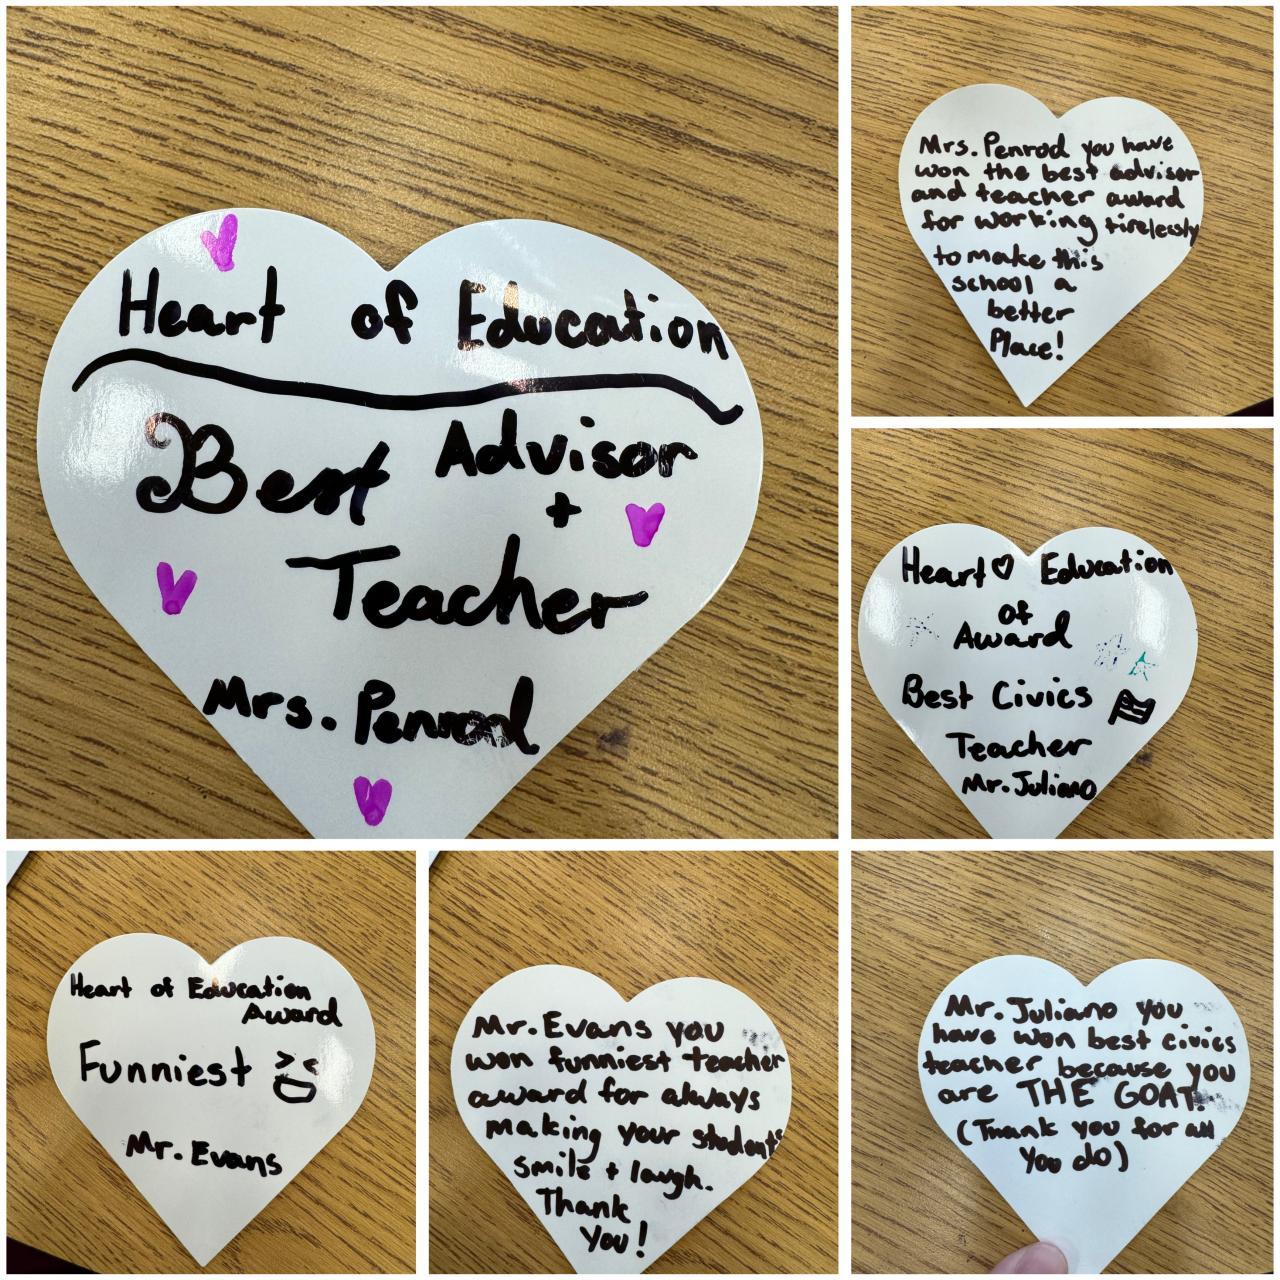 Heart of Education
Best Advisor
+
Teacher
Mrs. Penrod
Mrs. Penrod you have
won the best advisor
and teacher award
for working tirelessly
to make this
school a
better
Place!
Heart Education
of
Award
Best Civics
Teacher
Mr. Juliano
Heart of Education
Award
Funniest
Mr. Evans
Mr. Evans you
won funniest teacher
award for always
making your students
smile + laugh.
Thank
You!
Mr. Juliano you
have won best civics
teacher because you
are THE GOAT.
(Thank you for all
you do)